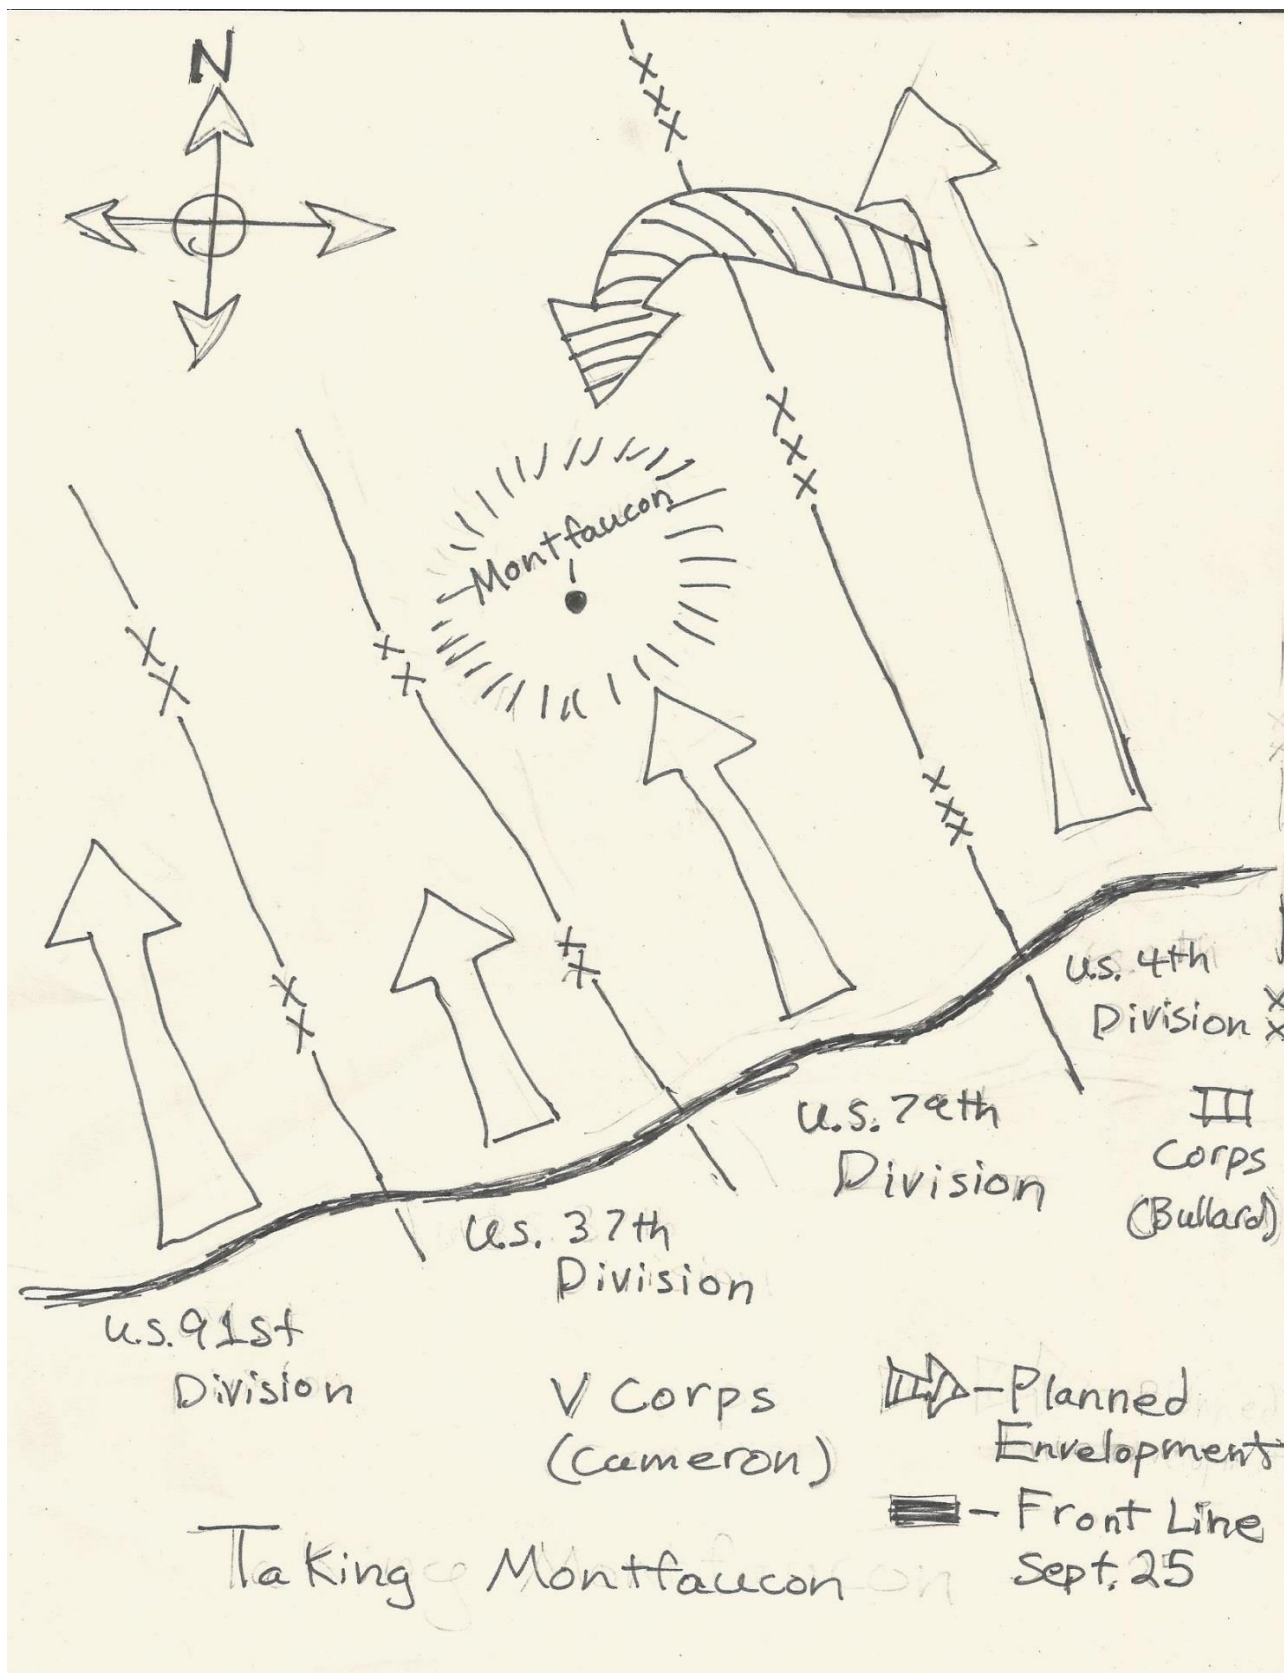 N
Montfaucon
U.S. 4th
Division
U.S. 79th
Division
III
Corps
(Bullard)
U.S. 37th
Division
U.S. 91st
Division
V Corps
(Cameron)
- Planned
Envelopment
- Front Line
Sept. 25
Taking Montfaucon